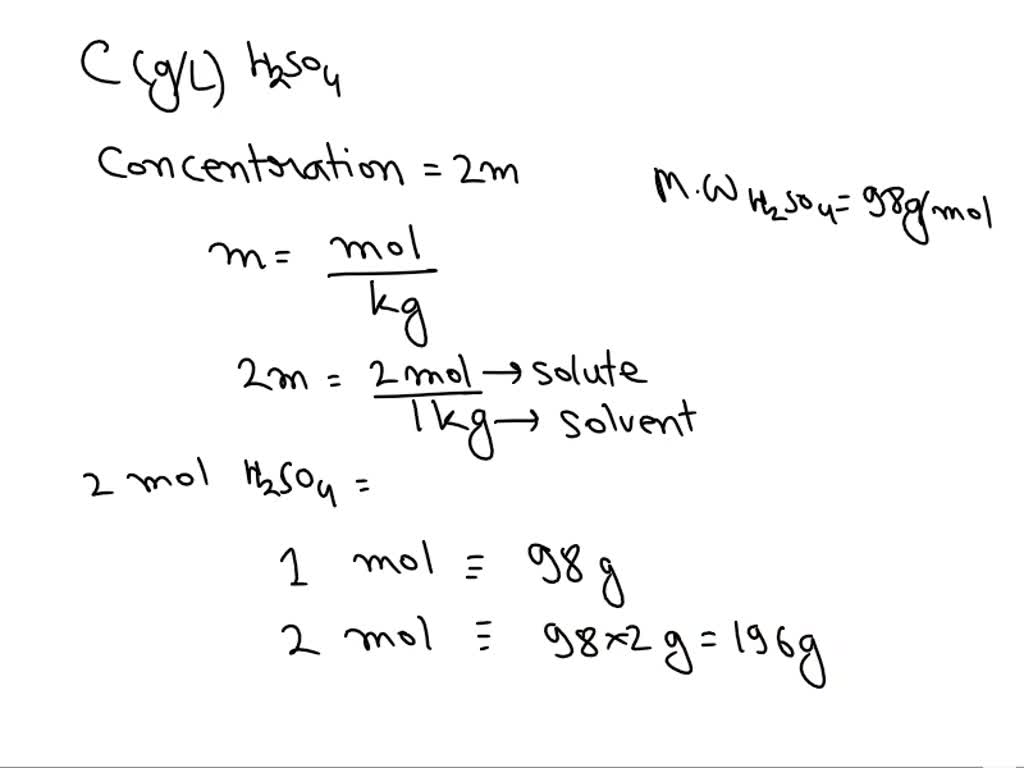 C (g/L) H2SO4
Concentoration = 2m
M.W H2SO4 = 98g/mol
m = mol
kg
2m = 2 mol → solute
1kg → solvent
2 mol H2SO4 =
1 mol ≡ 98 g
2 mol ≡ 98×2 g = 196g